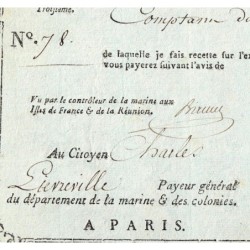 Troisième.
Comptant de
N.º 78.
de laquelle je fais recette sur l'ex
vous payerez suivant l'avis de
Vu par le contrôleur de la marine aux
Isles de France & de la Réunion.
Au Citoyen Charles
Levieville Payeur général
du département de la marine & des colonies.
A PARIS.